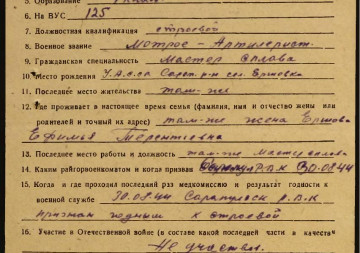 5. Образование
6. На ВУС 125
7. Должностная квалификация строевой
8. Военное звание Матрос - Артиллерист.
9. Гражданская специальность Мастер сплава
10. Место рождения У.А.С.С.Р. Сарап. р-н сел. Ершовка
11. Последнее место жительства там-же
12. Где проживает в настоящее время семья (фамилия, имя и отчество жены или
родителей и точный их адрес) там-же жена Ершова
Ефимья Терентиевна
13. Последнее место работы и должность там-же Мастер сплава
14. Каким райгорвоенкоматом и когда призван Р.В.К 30.08.44
15. Когда и где проходил последний раз медкомиссию и результат годности к
военной службе 30.08.44 Сарапульск. Р.В.К
признан годным к строевой
16. Участие в Отечественной войне (в составе какой последней части в качестве
Не участвов.